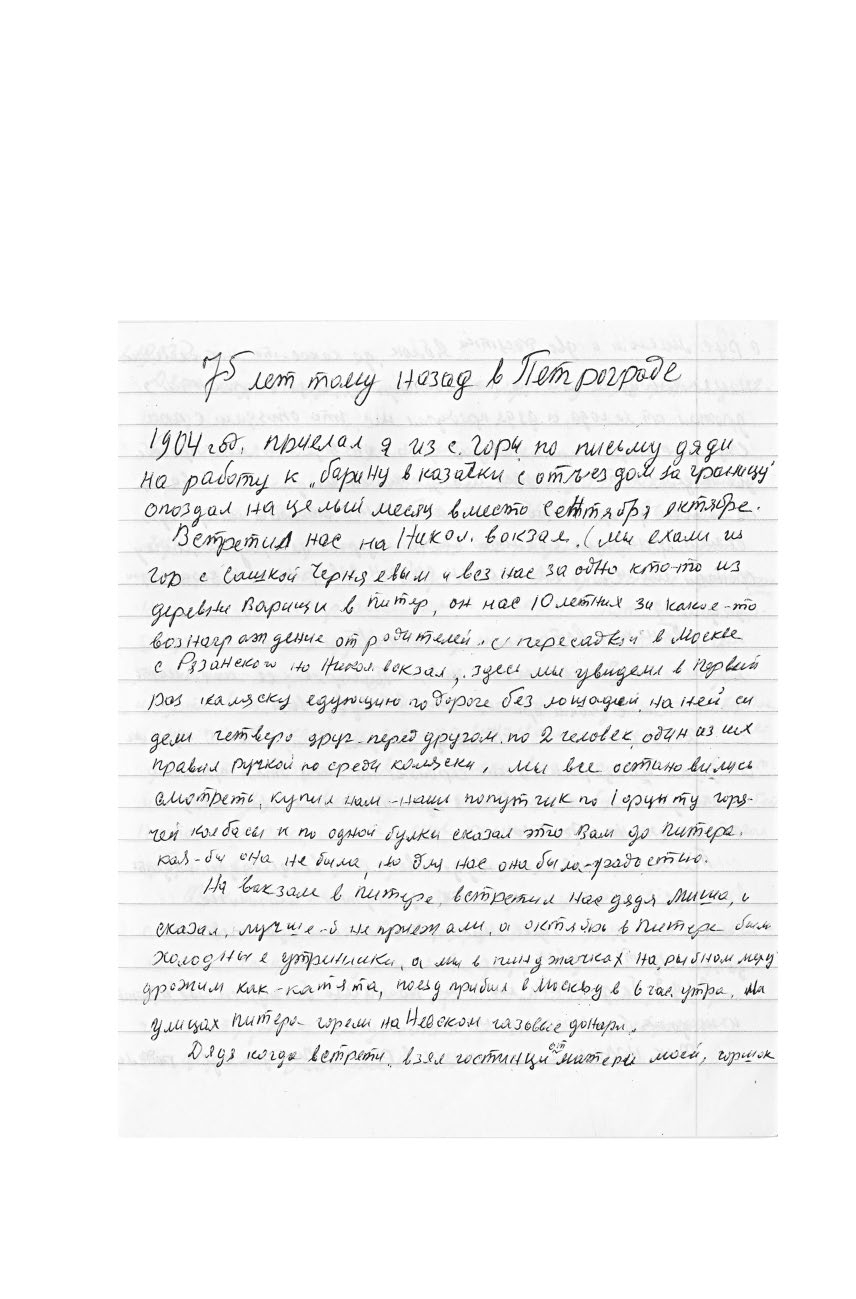 75 лет тому назад в Петрограде
1904 год, приехал я из с. Горы по письму дяди
на работу к „барину в казачки с отъездом за границу"
опоздал на целый месяц вместо сентября октябре.
Встретил нас на Никол. вокзал. (мы ехали из
гор с Сашкой Черняевым и вез нас за одно кто-то из
деревни Варищи в Питер, он нас 10 летних за какое-то
вознаграждение от родителей. с пересадкой в Москве
с Рязанского на Никол. вокзал, здесь мы увидели в первый
раз каляску едующию по дороге без лошадей, на ней си
дели четверо друг перед другом по 2 человек, один из их
правил ручкой по среди коляски, мы все остановились
смотреть, купил нам наш попутчик по 1 фунту горя-
чей колбасы и по одной булки сказал это Вам до Питера.
как-бы она не была, но для нас она было-радостью.
На вокзале в Питере, встретил нас дядя Миша, и
сказал, лучше-б не приежали, а октябрь в Питере были
холодные утринники, а мы в пинджачках на рыбном меху
дрожим как-катята, поезд прибыл в Москву в 6 час. утра, На
улицах Питера горели на Невском газовые фонари.
Дядя когда встрети, взял гостинци от матери моей, горшок